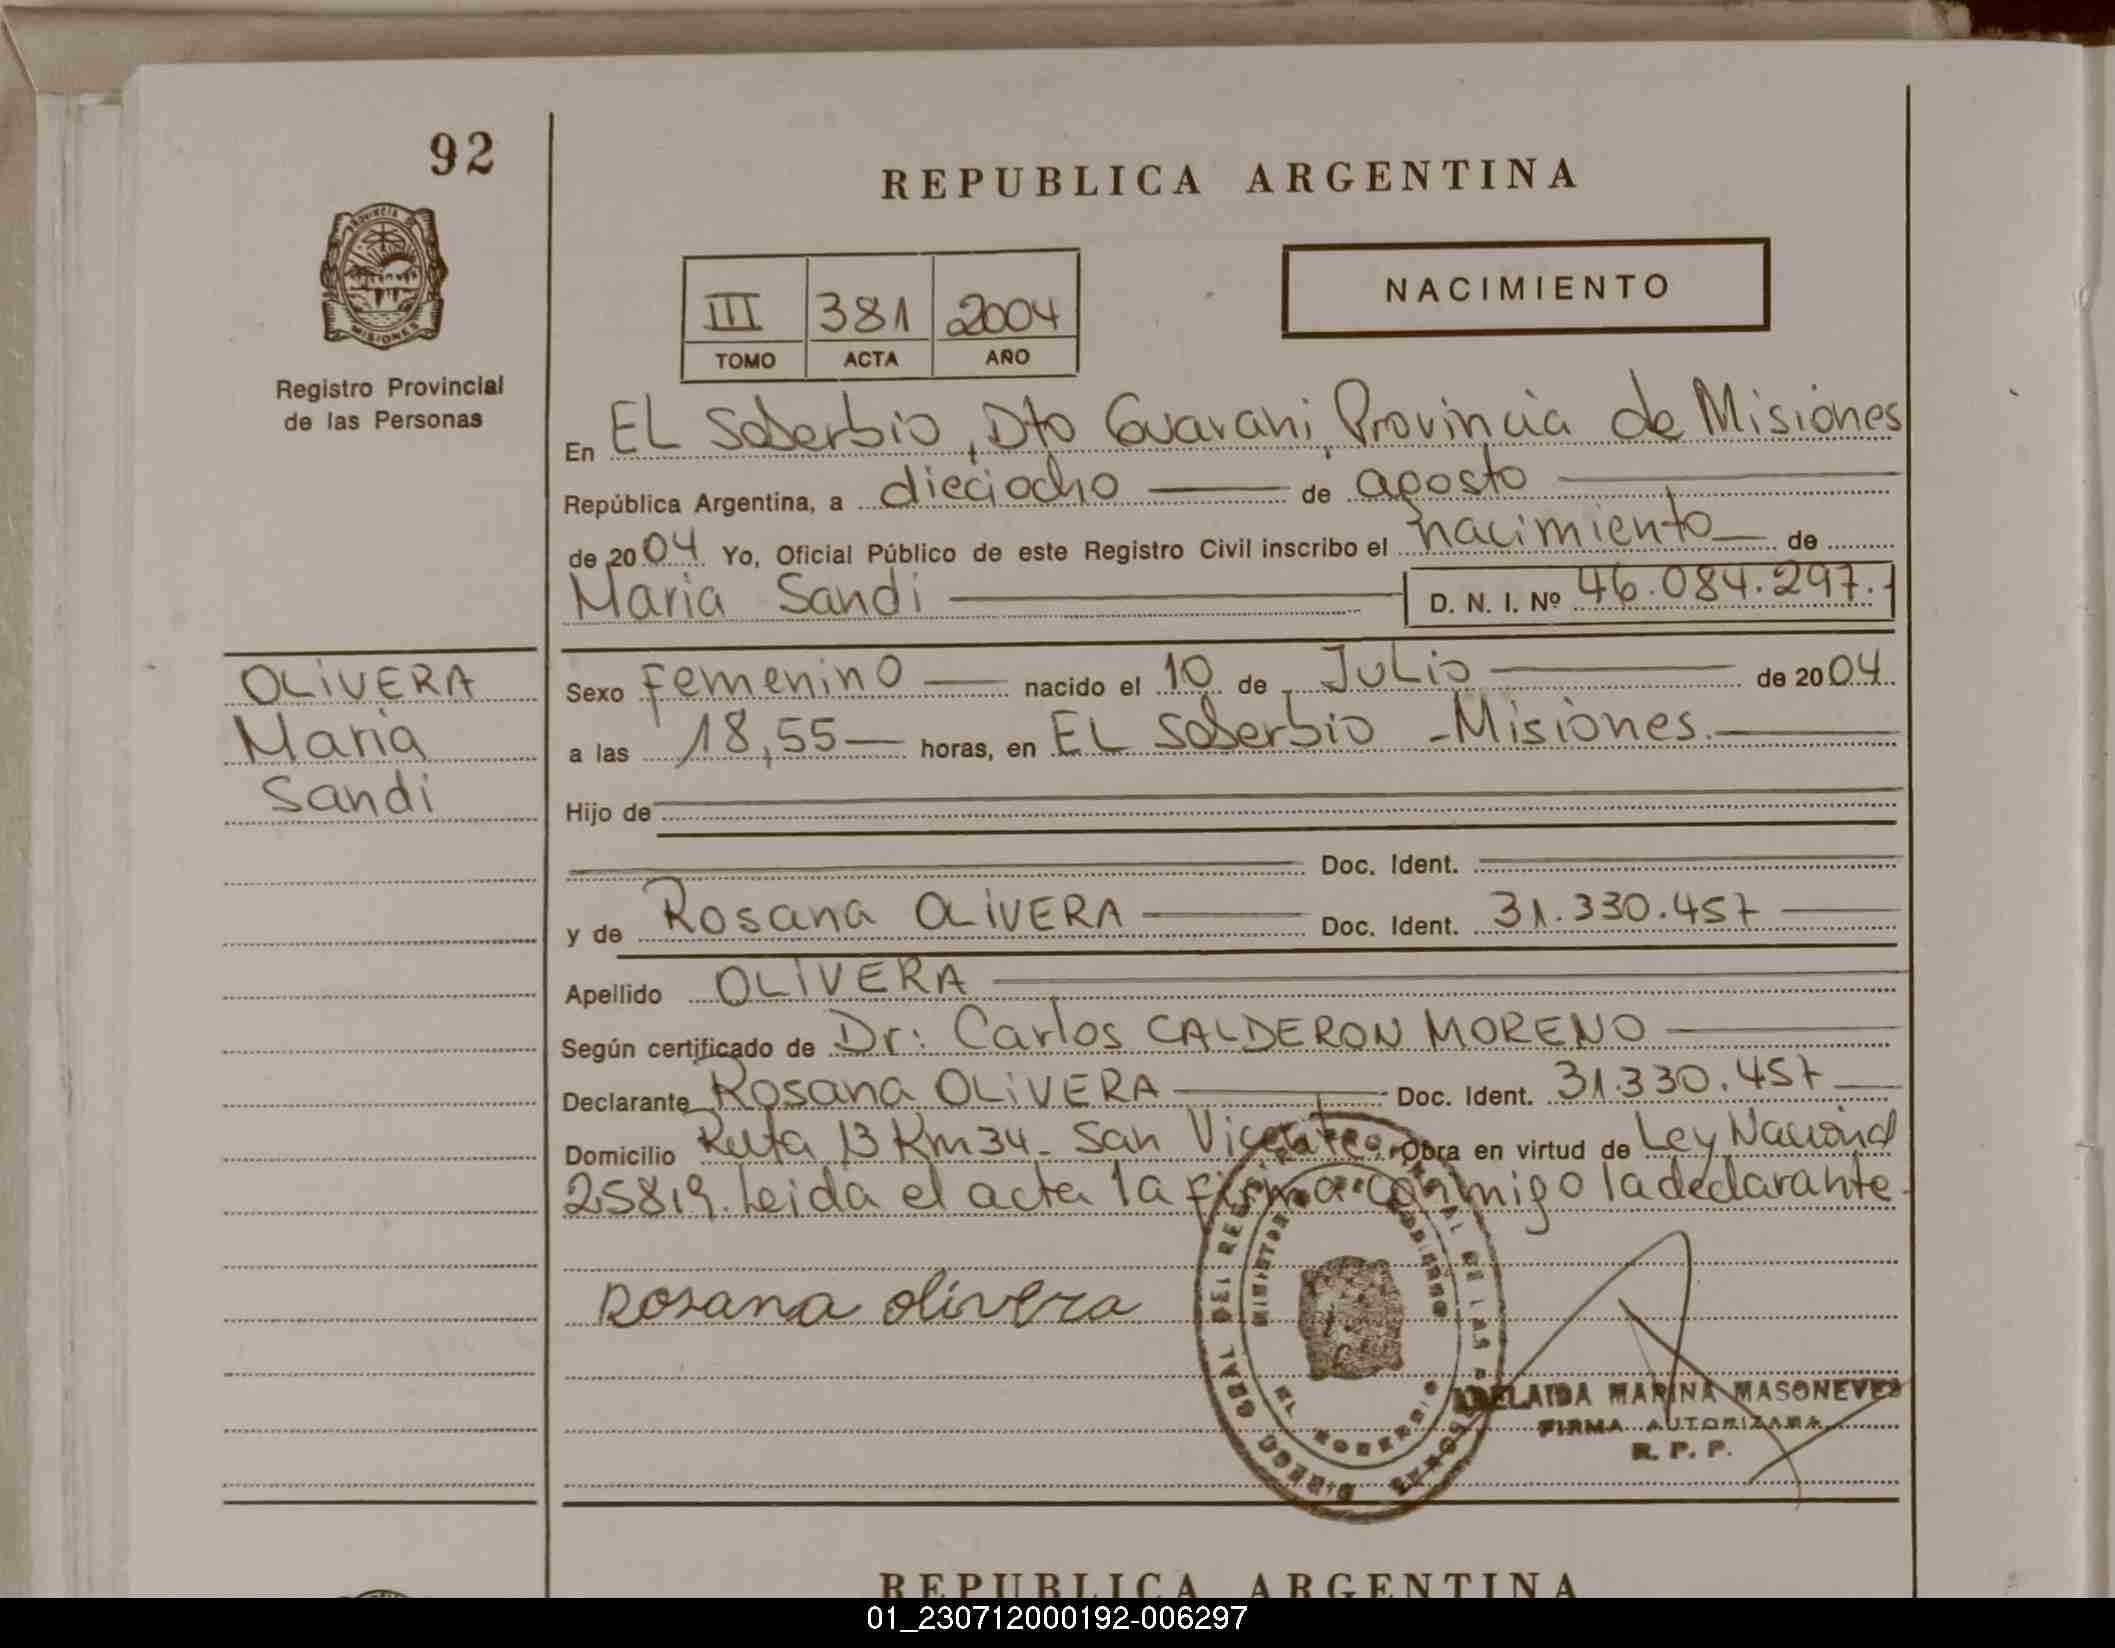 92
REPUBLICA ARGENTINA
PROVINCIA DE
MISIONES
Registro Provincial
de las Personas
III 381 2004
TOMO ACTA AÑO
NACIMIENTO
En EL Soberbio, Dto Guarani, Provincia de Misiones
República Argentina, a dieciocho de agosto
de 2004 Yo, Oficial Público de este Registro Civil inscribo el nacimiento de
Maria Sandi D. N. I. Nº 46.084.297.
OLIVERA
Maria
Sandi
Sexo femenino nacido el 10 de Julio de 2004
a las 18,55 horas, en EL Soberbio - Misiones.
Hijo de
Doc. Ident.
y de Rosana OLIVERA Doc. Ident. 31.330.457
Apellido OLIVERA
Según certificado de Dr: Carlos CALDERON MORENO
Declarante Rosana OLIVERA Doc. Ident. 31.330.457
Domicilio Ruta 13 Km 34 - San Vicente. Obra en virtud de Ley Nacional
25819. Leida el acta la firma conmigo la declarante.
Rosana olivera
DIRECC GRAL DEL REG DE LAS PERSONAS
MINISTERIO GOBIERNO
EL SOBERBIO
ADELAIDA MARINA MASONEVES
FIRMA AUTORIZADA
R. P. P.
REPUBLICA ARGENTINA
01_230712000192-006297